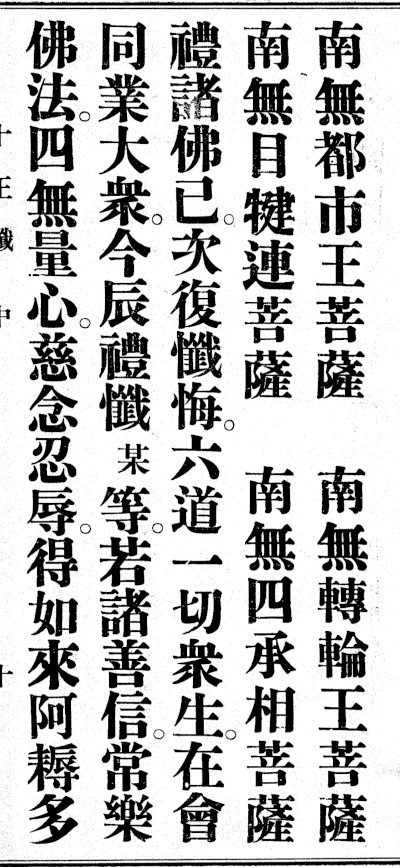 南無都市王菩薩　南無轉輪王菩薩
南無目犍連菩薩　南無四承相菩薩
禮諸佛已。次復懺悔。六道一切衆生。在會
同業大衆。今辰禮懺某等。若諸善信。常樂
佛法。四無量心。慈念忍辱。得如來阿耨多
十王懺中　十